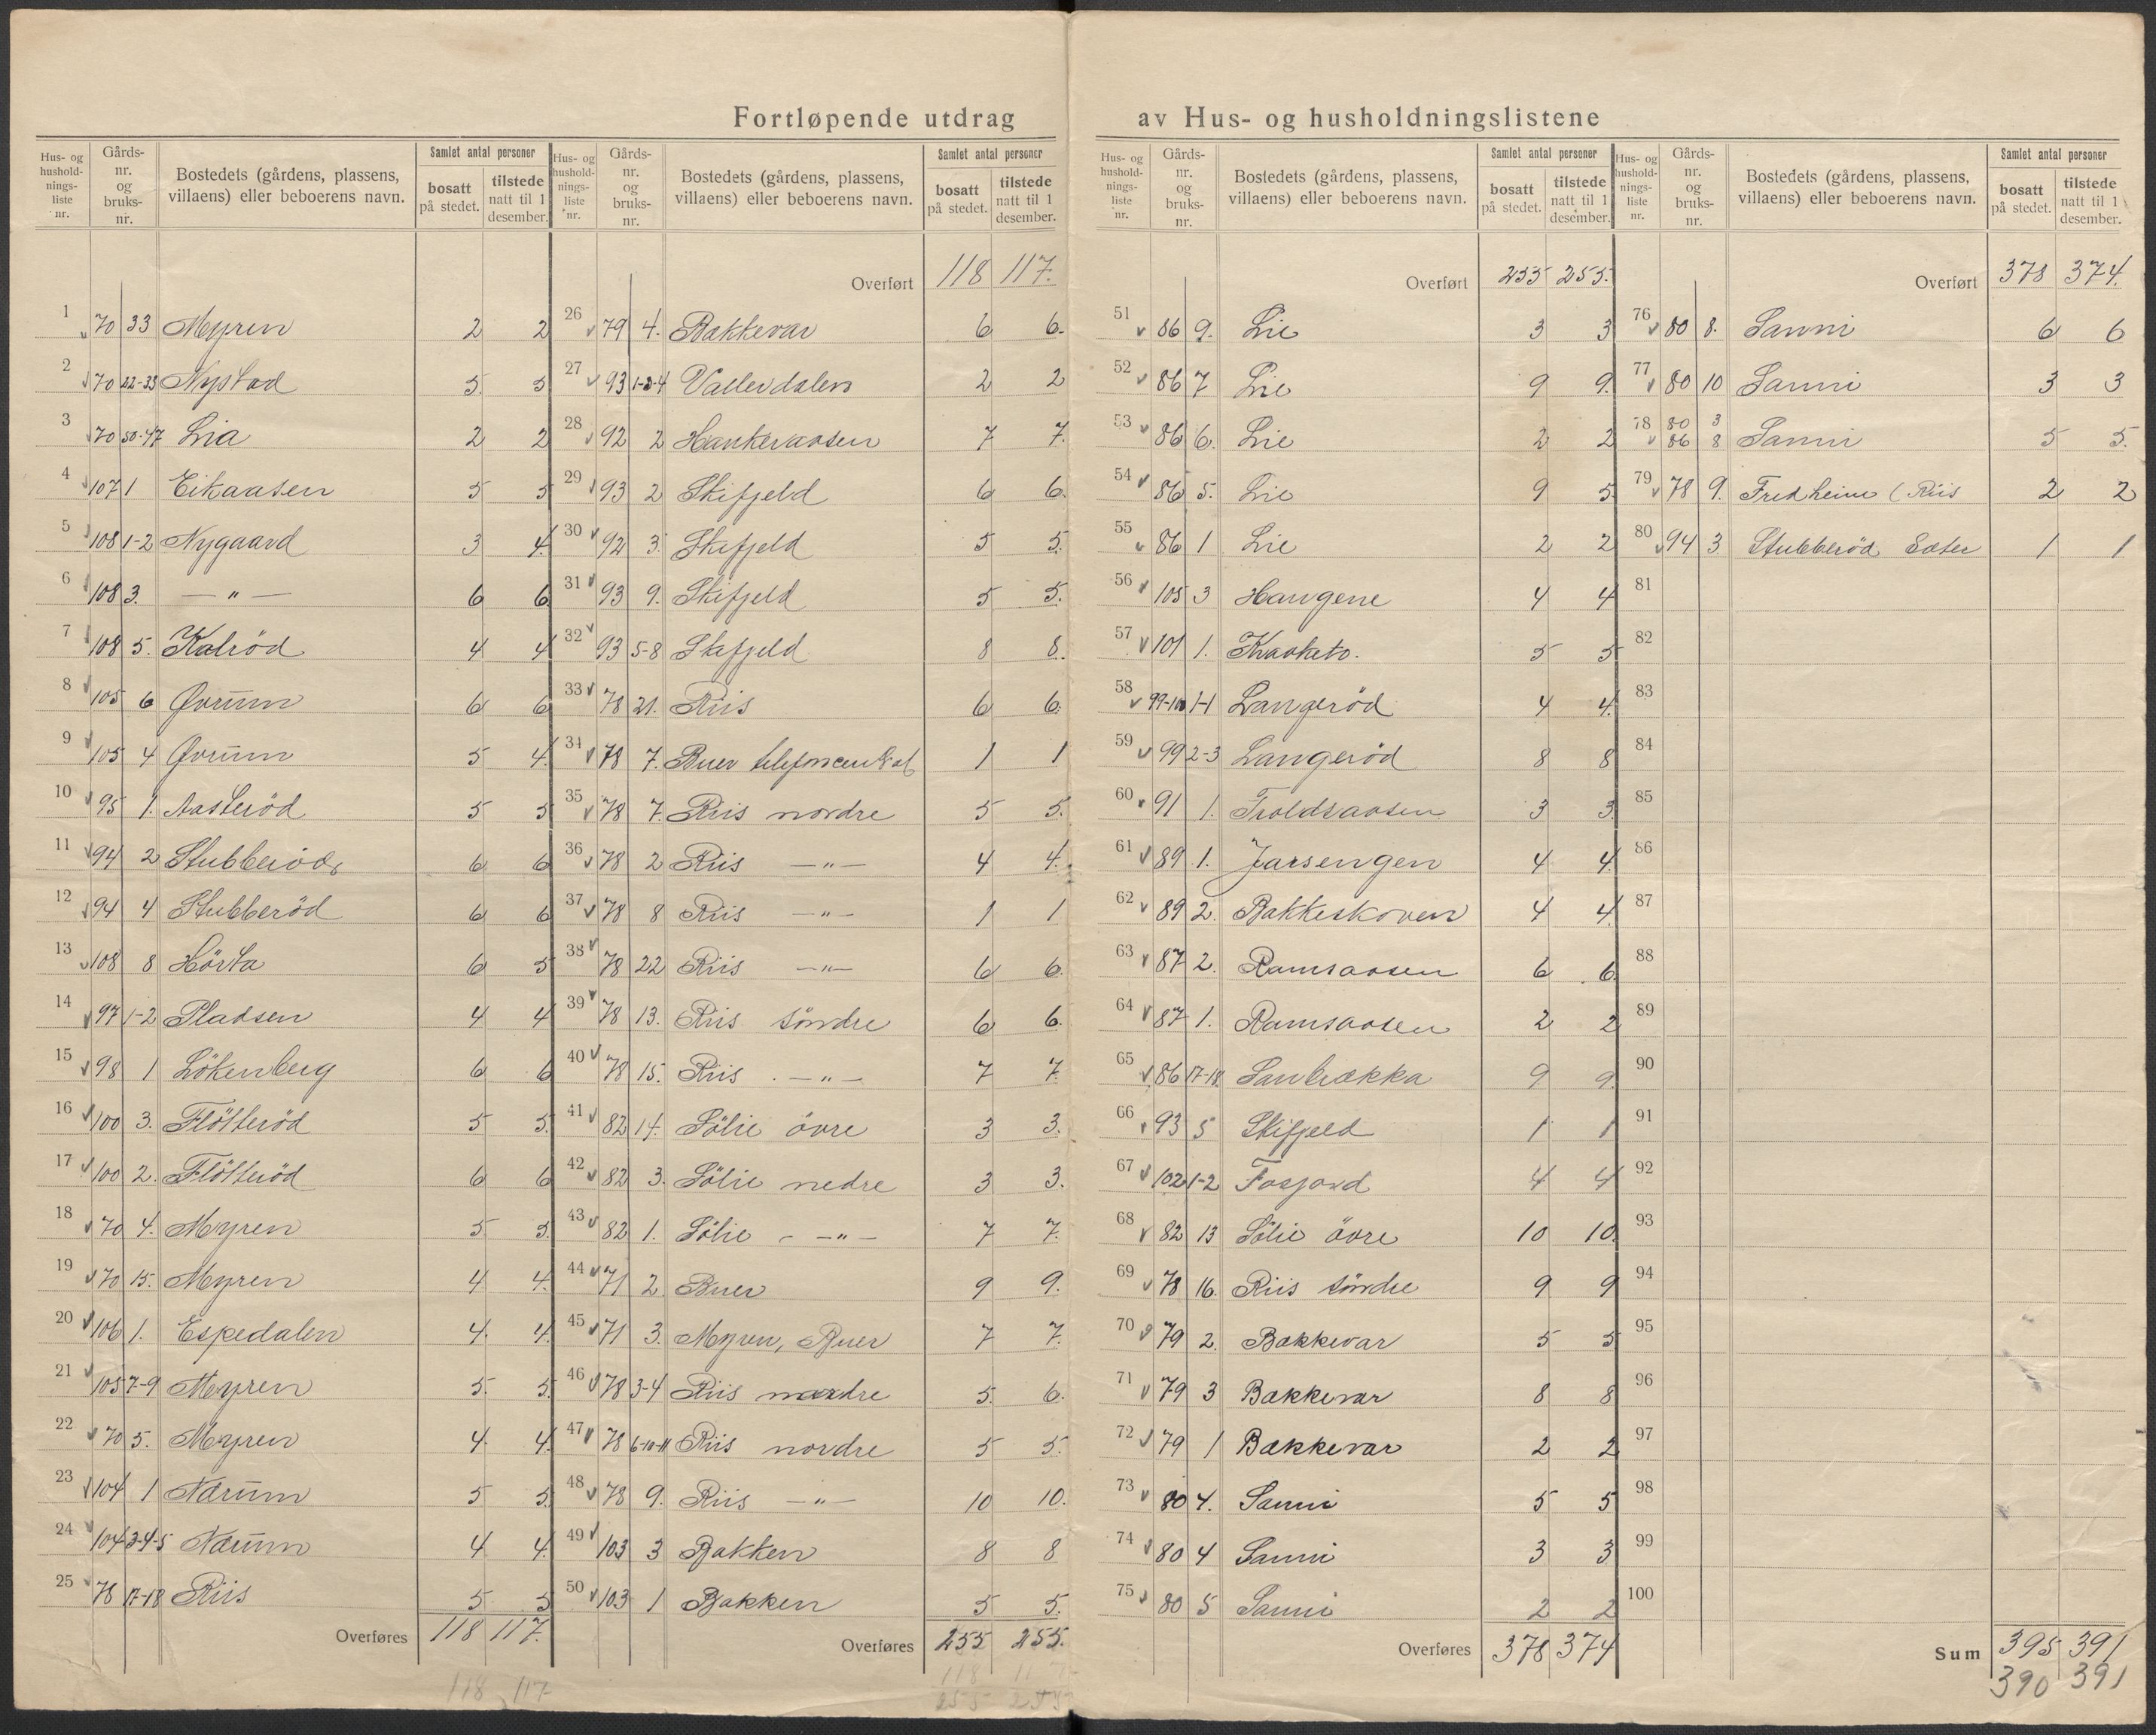 Fortløpende utdrag av Hus- og husholdningslistene
Hus- og hushold-nings-liste nr. | Gårds-nr. og bruks-nr. | Bostedets (gårdens, plassens, villaens) eller beboerens navn. | Samlet antal personer | bosatt på stedet. | tilstede natt til 1 desember.
1 70 33 Myren 2 2
2 70 22-33 Nystad 5 5
3 70 50-47 Lia 2 2
4 107 1 Eikaasen 5 5
5 108 1-2 Nygaard 3 4
6 108 3. — " — 6 6
7 108 5. Kalröd 4 4
8 105 6 Ørum 6 6
9 105 4 Ørum 5 4.
10 95 1. Aasteröd 5 5
11 94 2 Stubberöd 6 6
12 94 4 Stubberöd 6 6
13 108 8 Hörta 6 5
14 97 1-2 Pladsen 4 4
15 98 1 Lökenberg 6 6
16 100 3. Flötteröd 5 5.
17 100 2. Flötteröd 6 6
18 70 4. Myren 5 5.
19 70 15. Myren 4 4.
20 106 1. Espedalen 4. 4.
21 105 7-9 Myren 5. 5.
22 70 5. Myren 4. 4.
23 104 1 Narum 5 5.
24 104 3-4-5 Narum 4 4.
25 78 17-18 Riis 5 5
Overføres 118 117.
118 117
Hus- og hushold-nings-liste nr. | Gårds-nr. og bruks-nr. | Bostedets (gårdens, plassens, villaens) eller beboerens navn. | Samlet antal personer | bosatt på stedet. | tilstede natt til 1 desember.
Overført 118 117.
26 79 4. Bakkevar 6 6.
27 93 1-3-4 Vallerdalen 2 2
28 92 2 Hankeraasen 7 7.
29 93 2 Skifjeld 6 6.
30 92 3. Skifjeld 5 5.
31 93 9. Skifjeld 5 5.
32 93 5-8 Skifjeld 8 8.
33 78 21. Riis 6 6.
34 78 7. Buer telefoncentral 1 1
35 78 7. Riis nordre 5 5.
36 78 2 Riis — " — 4 4.
37 78 8 Riis — " — 1 1
38 78 22 Riis — " — 6 6.
39 78 13. Riis söndre 6 6.
40 78 15. Riis . — " — 7 7.
41 82 14. Sölie övre 3 3.
42 82 3. Sölie nedre 3 3.
43 82 1. Sölie - — " — 7 7.
44 71 2 Buer 9 9.
45 71 3. Myren, Buer 7 7.
46 78 3-4 Riis nordre 5. 6.
47 78 6-10-11 Riis nordre 5 5.
48 78 9. Riis — " — 10 10.
49 103 3 Bakken 8 8
50 103 1 Bakken 5 5.
Overføres 255 255.
118 117
255 255
Hus- og hushold-nings-liste nr. | Gårds-nr. og bruks-nr. | Bostedets (gårdens, plassens, villaens) eller beboerens navn. | Samlet antal personer | bosatt på stedet. | tilstede natt til 1 desember.
Overført 255 255.
51 86 9. Lie 3 3
52 86 7 Lie 9 9.
53 86 6. Lie 2 2
54 86 5. Lie 9 5
55 86 1 Lie 2 2
56 105 3 Haugene 4 4
57 101 1. Kraaketo. 5 5
58 99-100 1-1 Langeröd 4 4.
59 99 2-3 Langeröd 8 8
60 91 1. Troldsaasen 3 3.
61 89 1. Jarsengen 4 4.
62 89 2. Bakkeskoven 4 4.
63 87 2. Ramsaasen 6 6
64 87 1. Ramsaasen 2 2
65 86 17-18 Sanbrækka 9 9.
66 93 5 Skifjeld 1 1
67 102 1-2 Fosjord 4 4
68 82 13 Sölie övre 10 10
69 78 16. Riis söndre 9 9
70 79 2. Bakkevar 5 5
71 79 3 Bakkevar 8 8
72 79 1 Bakkevar 2 2
73 80 4. Sanni 5 5
74 80 4 Sanni 3 3
75 80 5 Sanni 2 2
Overføres 378 374
Hus- og hushold-nings-liste nr. | Gårds-nr. og bruks-nr. | Bostedets (gårdens, plassens, villaens) eller beboerens navn. | Samlet antal personer | bosatt på stedet. | tilstede natt til 1 desember.
Overført 378 374.
76 80 8. Sanni 6 6
77 80 10 Sanni 3 3
78 80 3 86 8 Sanni 5 5.
79 78 9. Fredheim (Riis 2 2
80 94 3 Stubberöd Sæter 1 1
81
82
83
84
85
86
87
88
89
90
91
92
93
94
95
96
97
98
99
100
Sum 395 391
390 391